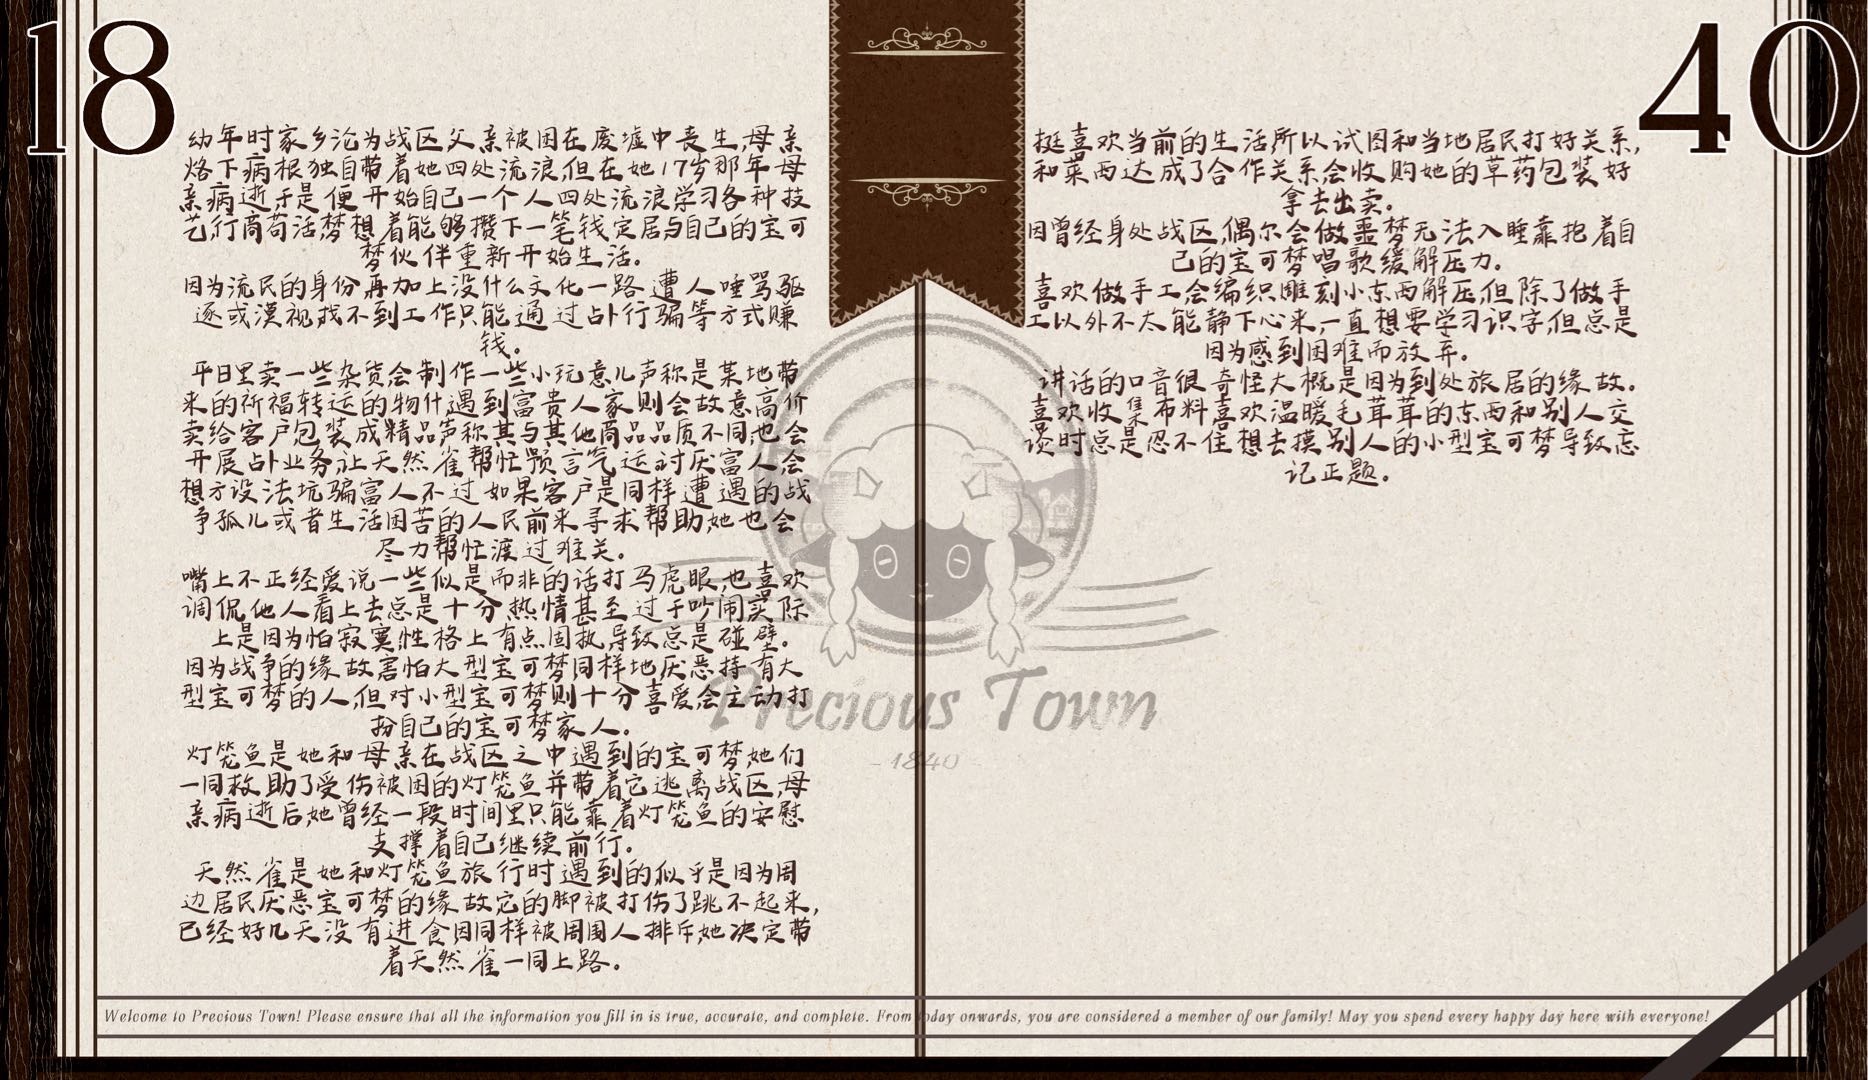 18
40
幼年时家乡沦为战区父亲被困在废墟中丧生,母亲
烙下病根独自带着她四处流浪,但在她17岁那年母
亲病逝于是便开始自己一个人四处流浪学习各种技
艺,行商苟活,梦想着能够攒下一笔钱定居与自己的宝可
梦伙伴重新开始生活。
因为流民的身份再加上没什么文化一路遭人唾骂驱
逐或漠视,找不到工作,只能通过占卜行骗等方式赚
钱。
平日里卖一些杂货,会制作一些小玩意儿声称是某地带
来的祈福转运的物什,遇到富贵人家则会故意高价
卖给客户包装成精品,声称其与其他商品品质不同,也会
开展占卜业务,让天然雀帮忙预言气运,讨厌富人,会
想方设法坑骗富人不过如果客户是同样遭遇的战
争孤儿或者生活困苦的人民前来寻求帮助,她也会
尽力帮忙渡过难关。
嘴上不正经爱说一些似是而非的话打马虎眼,也喜欢
调侃他人看上去总是十分热情甚至过于吵闹实际
上是因为怕寂寞,性格上有点固执,导致总是碰壁。
因为战争的缘故害怕大型宝可梦,同样地,厌恶持有大
型宝可梦的人,但对小型宝可梦则十分喜爱,会主动打
扮自己的宝可梦家人。
灯笼鱼是她和母亲在战区之中遇到的宝可梦,她们
一同救助了受伤被困的灯笼鱼并带着它逃离战区,母
亲病逝后,她曾经一段时间里只能靠着灯笼鱼的安慰
支撑着自己继续前行。
天然雀是她和灯笼鱼旅行时遇到的,似乎是因为周
边居民厌恶宝可梦的缘故它的脚被打伤了跳不起来,
已经好几天没有进食,因同样被周围人排斥,她决定带
着天然雀一同上路。
挺喜欢当前的生活所以试图和当地居民打好关系,
和莱西达成了合作关系,会收购她的草药包装好
拿去出卖。
因曾经身处战区,偶尔会做噩梦无法入睡靠抱着自
己的宝可梦唱歌缓解压力。
喜欢做手工会编织雕刻小东西解压,但除了做手
工以外不太能静下心来,一直想要学习识字,但总是
因为感到困难而放弃。
讲话的口音很奇怪大概是因为到处旅居的缘故。
喜欢收集布料喜欢温暖毛茸茸的东西和别人交
谈时总是忍不住想去摸别人的小型宝可梦导致忘
记正题。
Precious Town
- 1840 -
Welcome to Precious Town! Please ensure that all the information you fill in is true, accurate, and complete. From today onwards, you are considered a member of our family! May you spend every happy day here with everyone!